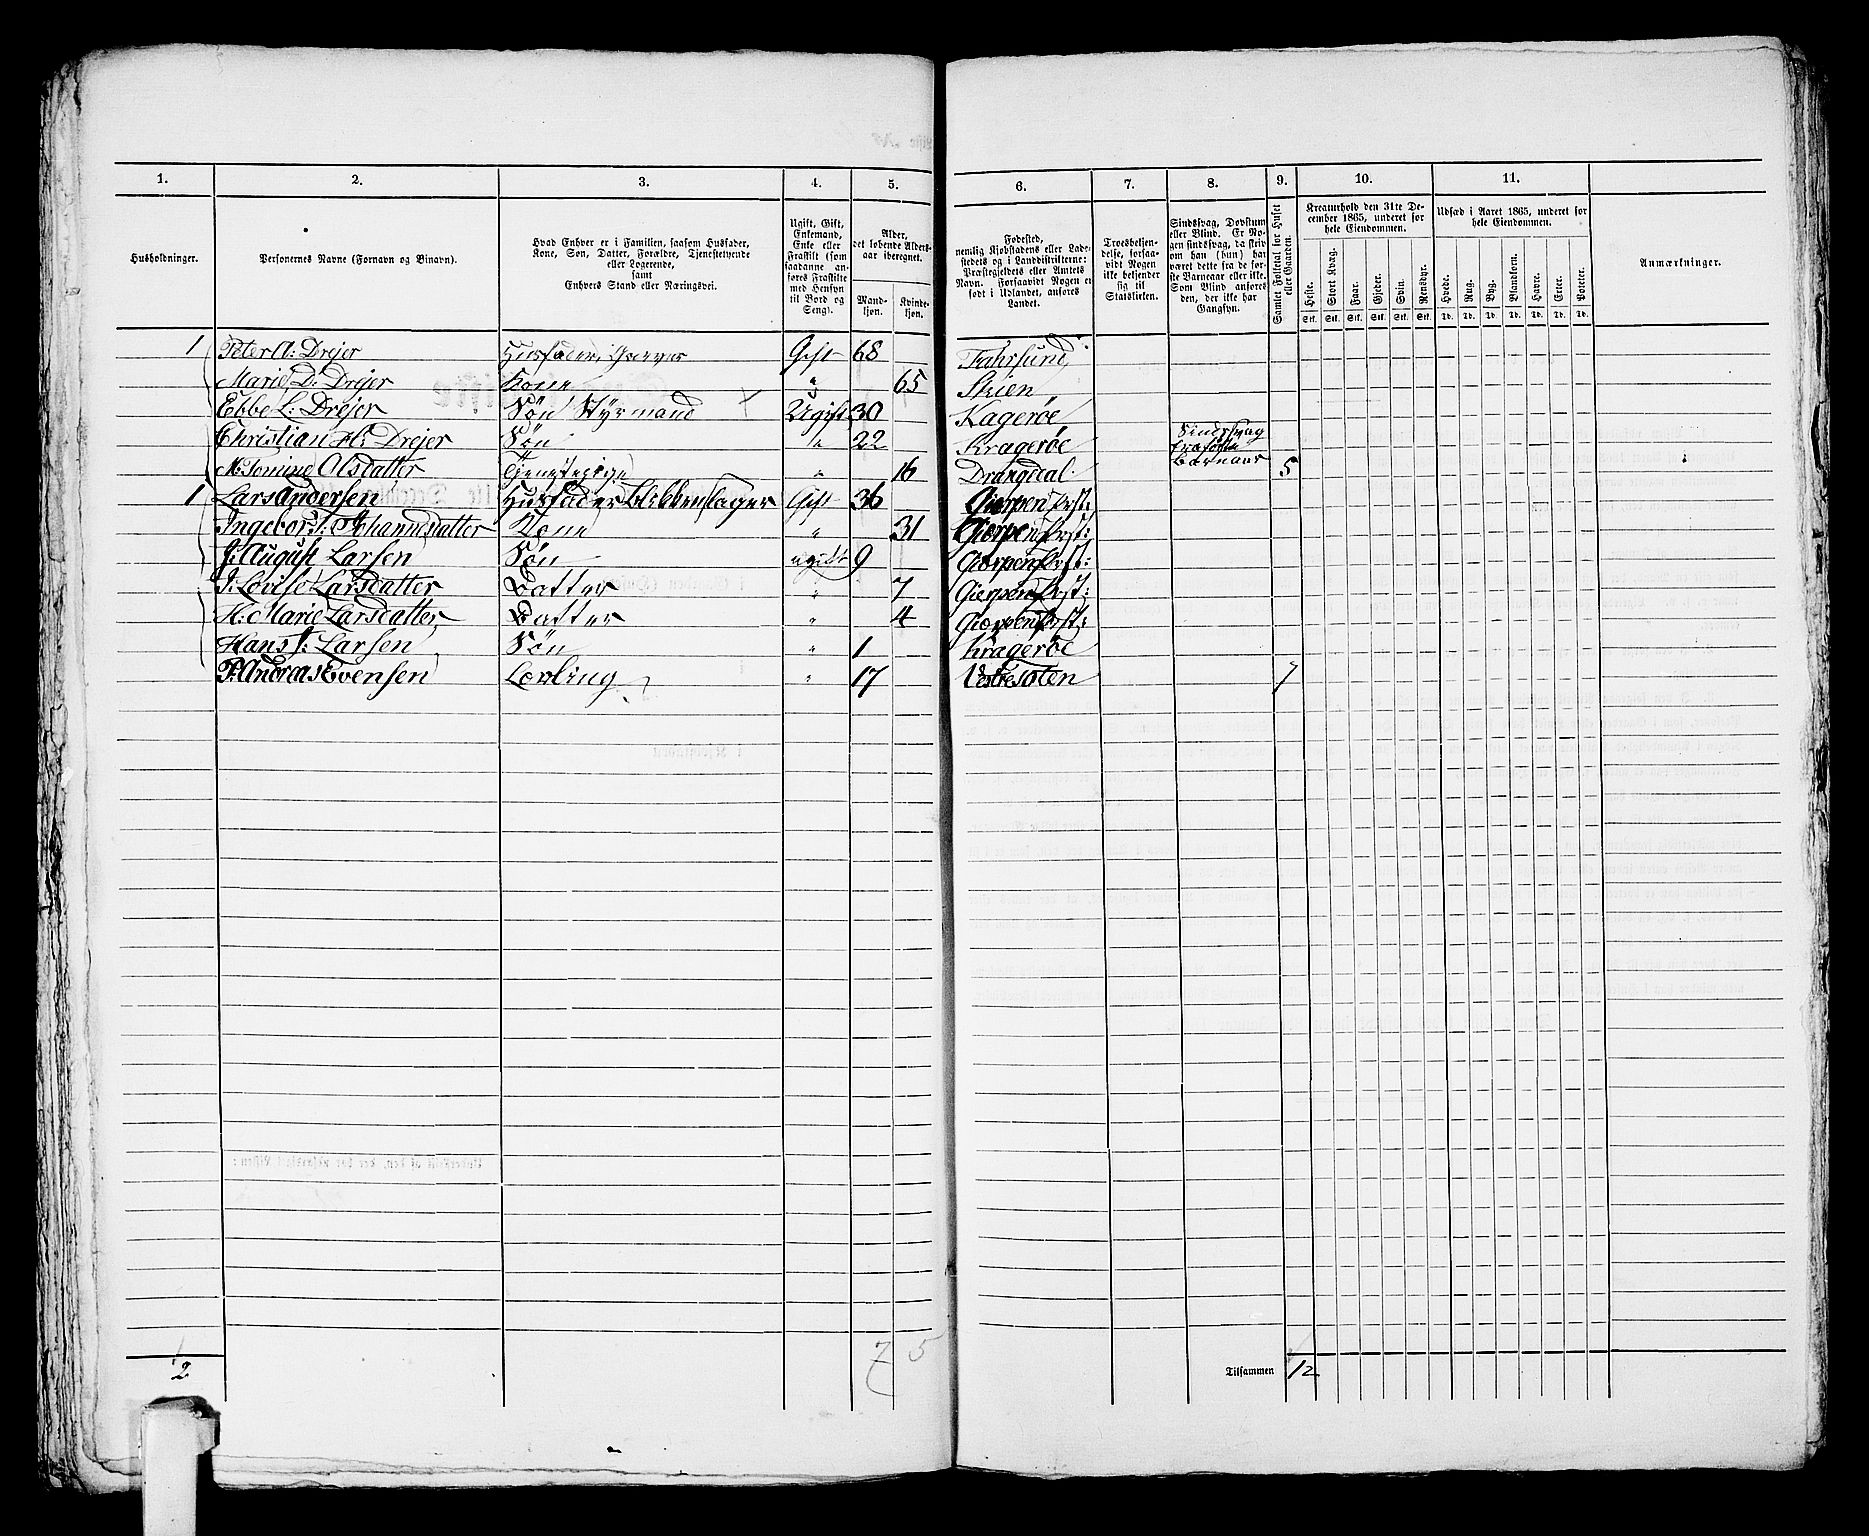 1. 2. 3. 4. 5. 6. 7. 8. 9. 10. 11.
Husholdninger.
Personernes Navne (Fornavn og Binavn).
Hvad Enhver er i Familien, saasom Husfader,
Kone, Søn, Datter, Forældre, Tjenestetyende
eller Logerende,
samt
Enhvers Stand eller Næringsvei.
Ugift, Gift,
Enkemand,
Enke eller
Fraskilt (som
saadanne an-
føres Fraskilte
med Hensyn
til Bord og
Seng).
Alder,
det løbende Alders-
aar iberegnet.
Mand-
kjøn.
Kvinde-
kjøn.
Fødested,
nemlig Kjøbstadens eller Lade-
stedets og i Landdistrikterne:
Præstegjeldets eller Amtets
Navn. Forsaavidt Nogen er
født i Udlandet, anføres
Landet.
Troesbekjen-
delse, forsaa-
vidt Nogen
ikke bekjender
sig til
Statskirken.
Sindssvag, Døvstum
eller Blind. Er No-
gen sindssvag, da skriv
om han (hun) har
været dette fra de før-
ste Barneaar eller ikke.
Som Blind anføres
den, der ikke har
Gangsyn.
Samlet Folketal for Huset
eller Gaarden.
Kreaturhold den 31te De-
cember 1865, underet for
hele Eiendommen.
Heste. Stort Kvæg. Faar. Gjeder. Svin. Rensdyr.
Stk. Stk. Stk. Stk. Stk. Stk.
Udsæd i Aaret 1865, underet for
hele Eiendommen.
Hvede. Rug. Byg. Blandkorn. Havre. Erter. Poteter.
Td. Td. Td. Td. Td. Td. Td.
Anmærkninger.
1 Peter A: Drejer Husfader, Graver Gift 68 Fahrsund
Marie D. Drejer Kone " 65 Skien
Ebbe L: Drejer Søn Styrmand Ugift 30 Kagerøe
Christian H: Drejer Søn " 22 Kragerøe Sindssvag fra første Barneaar
M: Tomine Olsdatter Tjenestepige " 16 Drangedal 5
1 Lars Andersen Husfader Blikkenslager Gift 36 Gierpen Prst:
Ingebor J: Johannsdatter Kone " 31 Gierpen Prst:
J: August Larsen Søn ugift 9 Gierpen Prst:
J: Lovise Larsdatter Datter " 7 Gierpen Prst:
H: Marie Larsdatter Datter " 4 Gierpen Prst:
Hans J: Larsen Søn " 1 Kragerøe
P: Andreas Evensen Lærling " 17 Vestre Toten 7
2 7 5 Tilsammen 12